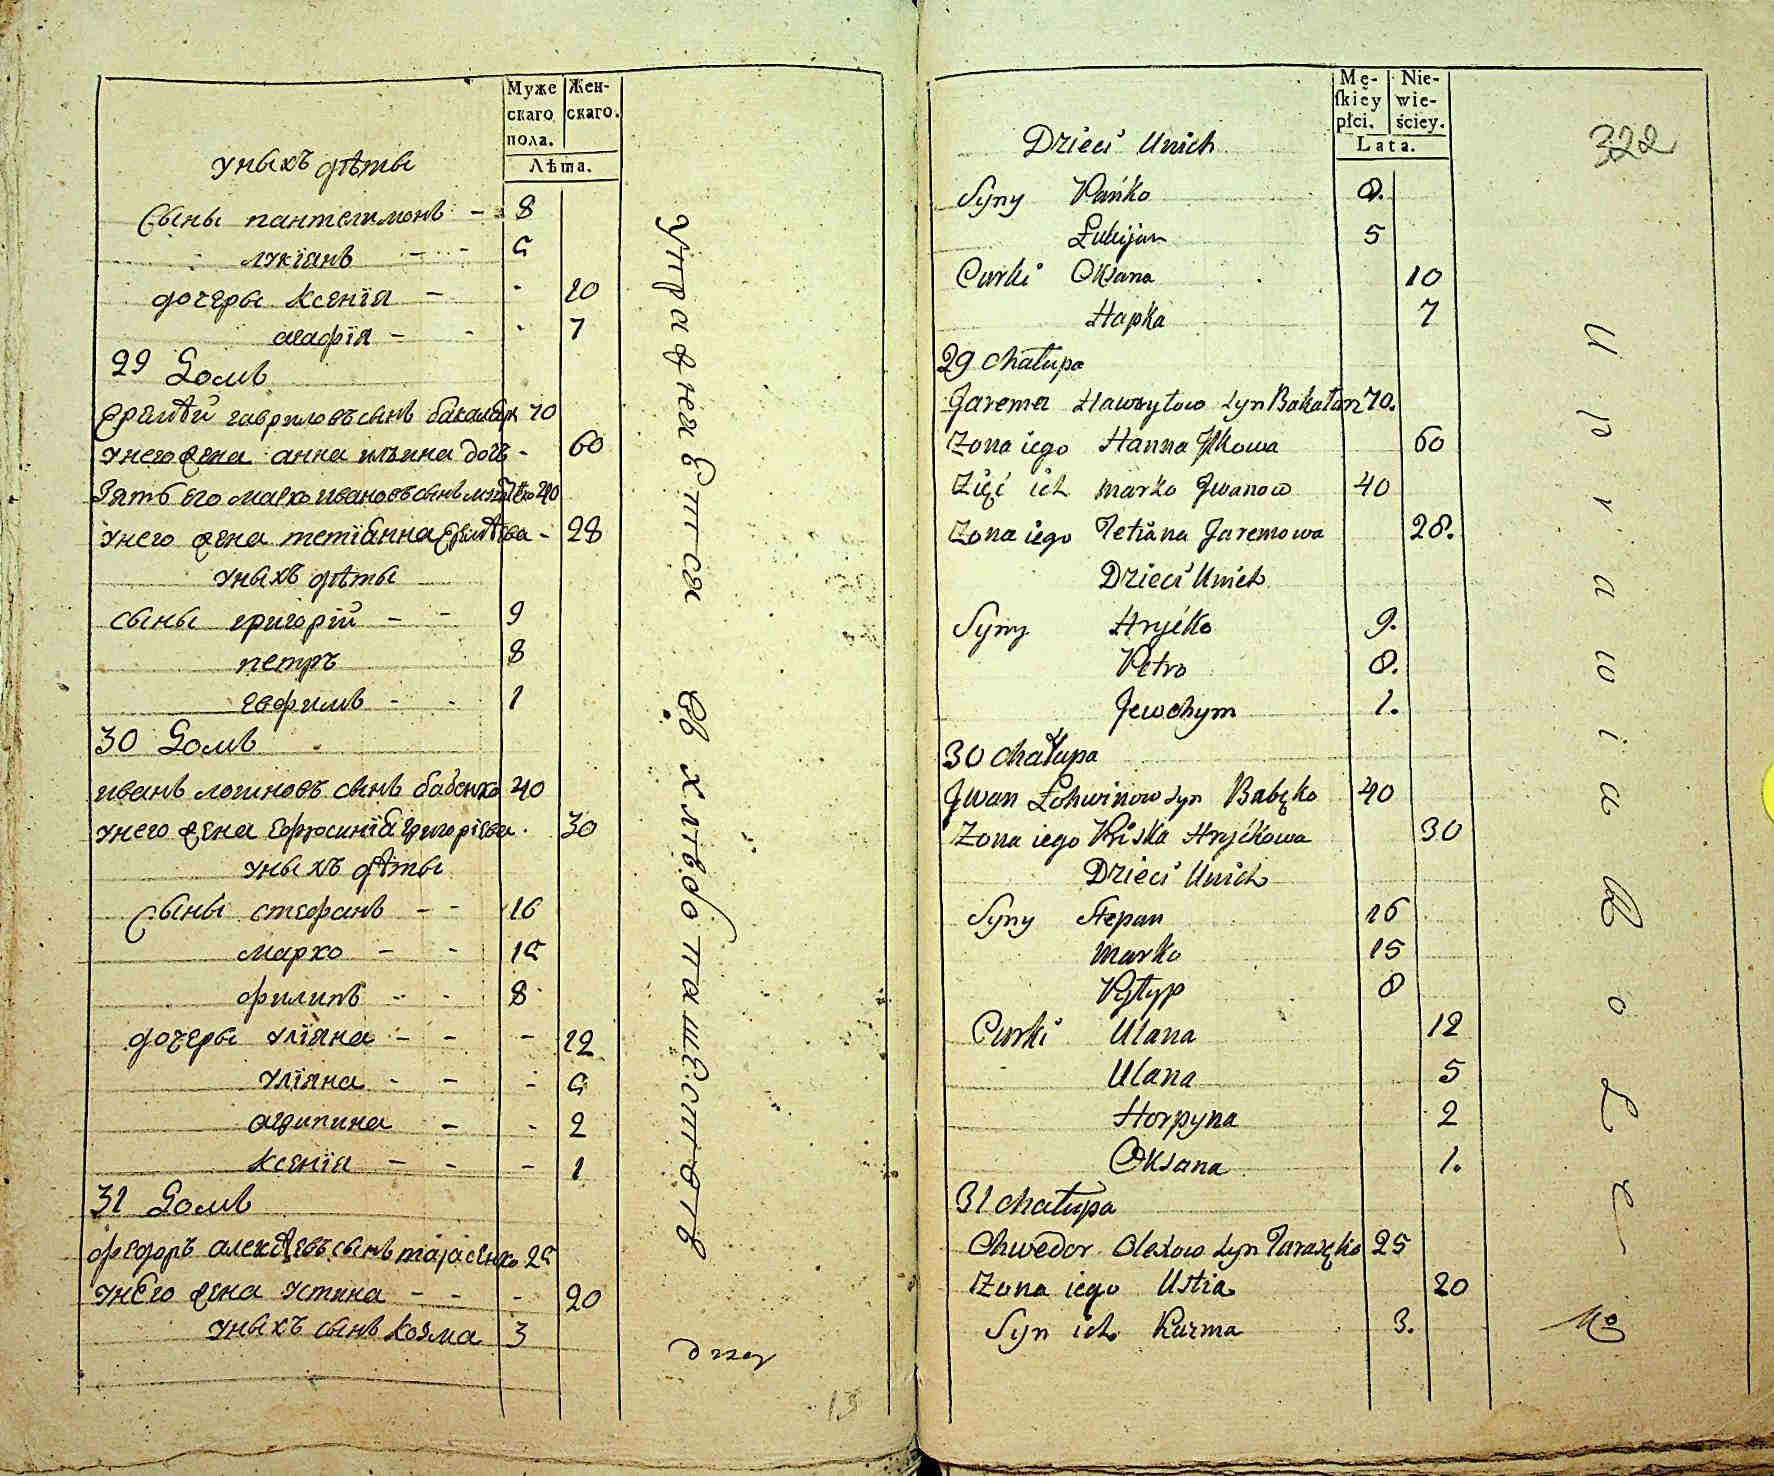 Муже
скаго
пола.
Жен-
скаго.
Лѣта.
уныхъ дѣты
Сыны пантелимонъ - 8
лукіанъ - - 5
дочеры ксенія - - 10
агафія - - 7
29 Домъ
Еремѣй гавриловъ сынъ бакаляр 70
унего жена анна ильина дочь - 60
Зять его марко ивановъ сынъ 40
унего жена метіанна Еремѣева - 28
уныхъ дѣты
сыны григорій - - 9
петръ 8
евфимъ - - 1
30 Домъ
иванъ логиновъ сынъ бабенко 40
унего жена Ефросинія григоріева - 30
уныхъ дѣты
Сыны стефанъ - - 16
марко - - 15
филипъ - - 8
дочеры уліяна - - - 12
уліяна - - - 5
агрипина - - 2
ксенія - - - 1
31 Домъ
федоръ алексѣевъ сынъ тарасенко 25
унего жена устина - - - 20
уныхъ сынъ козма 3
упражняется въ хлѣбопашествѣ
13
Mę-
skiey
płci.
Nie-
wie-
ściey.
Lata.
322
Dzieci Unich
Syny Pańko 8.
Łukijan 5
Curki Oksana 10
Hapka 7
29 Chałupa
Jarema Hawryłow syn Bakałar 70.
Zona iego Hanna Jłkowa 60
Zięć ich Marko Jwanow 40
Zona iego Tetiana Jaremowa 28.
Dzieci Unich
Syny Hryćko 9.
Petro 8.
Jewchym 1.
30 Chałupa
Jwan Łohwinow syn Babęko 40
Zona iego Priska Hryćkowa 30
Dzieci Unich
Syny Stepan 16
Marko 15
Pyłyp 8
Curki Ulana 12
Ulana 5
Horpyna 2
Oksana 1.
31 Chałupa
Chwedor Olexow syn Tarasęko 25
Zona iego Ustia 20
Syn ich Kuzma 3.
Uprawia Role